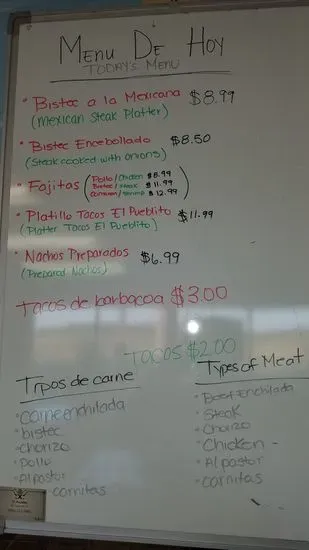 Menu De Hoy
TODAY'S MENU
• Bistec a la Mexicana $8.99
(Mexican Steak Platter)
• Bistec Encebollado $8.50
(Steak cooked with onions)
• Fajitas (Pollo/Chicken $8.99
Bistec/Steak $11.99
Camaron/Shrimp $12.99)
• Platillo Tacos El Pueblito $11.99
(Platter Tacos El Pueblito)
• Nachos Preparados $6.99
(Prepared Nachos)
Tacos de barbacoa $3.00
TACOS $2.00
Tipos de carne
• carne enchilada
• bistec
• chorizo
• pollo
• Al pastor
• carnitas
Types of Meat
• Beef Enchilada
• Steak
• Chorizo
• Chicken -
• Al pastor
• carnitas